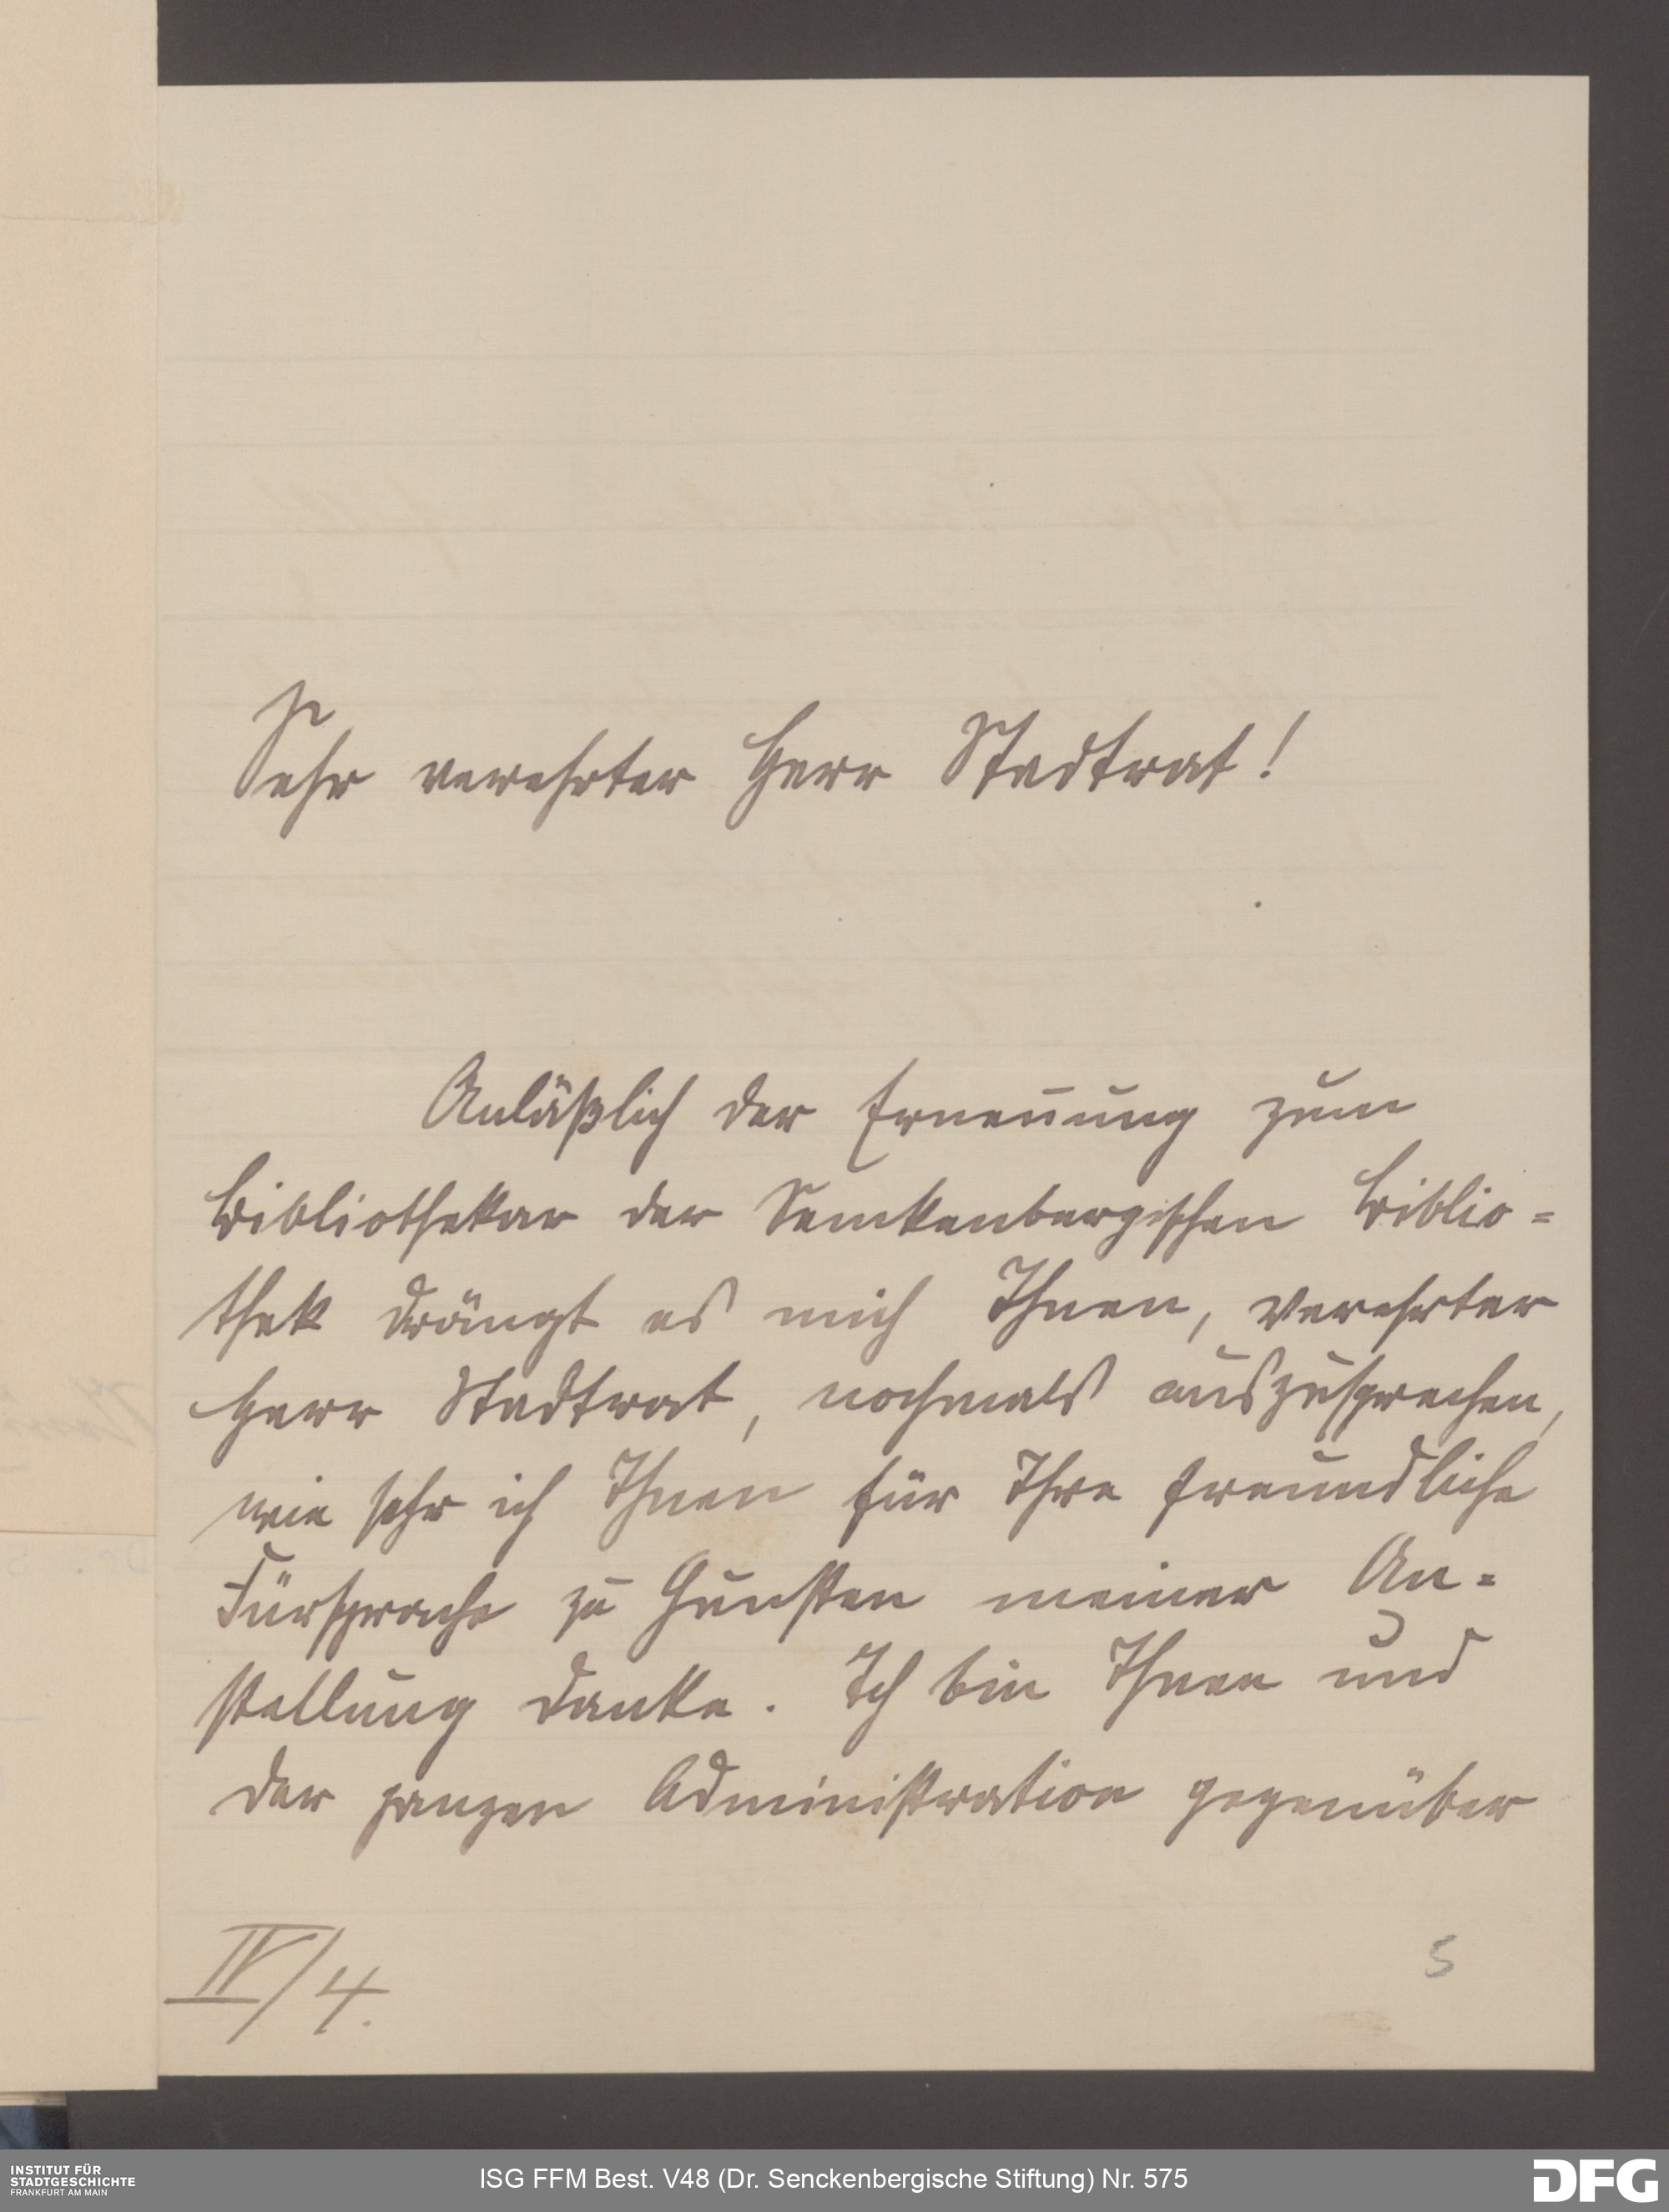 Sehr verehrter Herr Stadtrat!
Anläßlich der Ernen̄ung zum
Bibliothekar der Senckenbergischen Biblio=
thek drängt es mich Ihnen, verehrter
Herr Stadtrat, nochmals auszusprechen,
wie sehr ich Ihnen für Ihre freundliche
Fürsprache zu Gunsten meiner An=
stellung danke. Ich bin Ihnen und
der ganzen Administration gegenüber
IV/4.
5
INSTITUT FÜR
STADTGESCHICHTE
FRANKFURT AM MAIN
ISG FFM Best. V48 (Dr. Senckenbergische Stiftung) Nr. 575
DFG